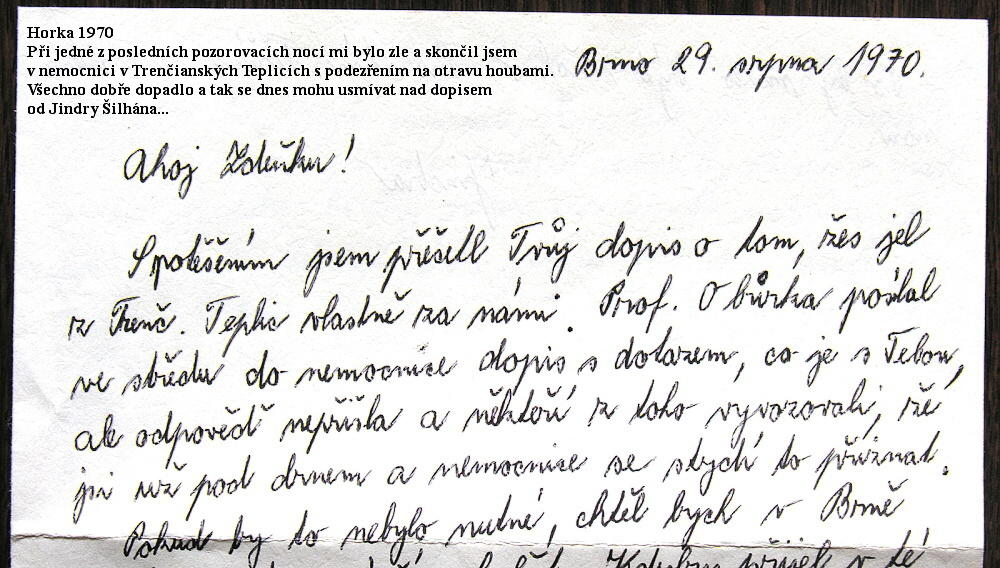 Horka 1970
Při jedné z posledních pozorovacích nocí mi bylo zle a skončil jsem
v nemocnici v Trenčianských Teplicích s podezřením na otravu houbami.
Všechno dobře dopadlo a tak se dnes mohu usmívat nad dopisem
od Jindry Šilhána...
Brno 29. srpna 1970.
Ahoj Zdeňku!
S potěšením jsem přešetl Tvůj dopis o tom, žes jel
z Trenč. Teplic vlastně za námi. Prof. Obůrka poslal
ve středu do nemocnice dopis s dotazem, co je s Tebou,
ale odpověď nepřišla a někteří z toho vyvozovali, že
jsi už pod drnem a nemocnice se stydí to přiznat.
Pokud by to nebylo nutné, chtěl bych v Brně
Kdybys přijel v té